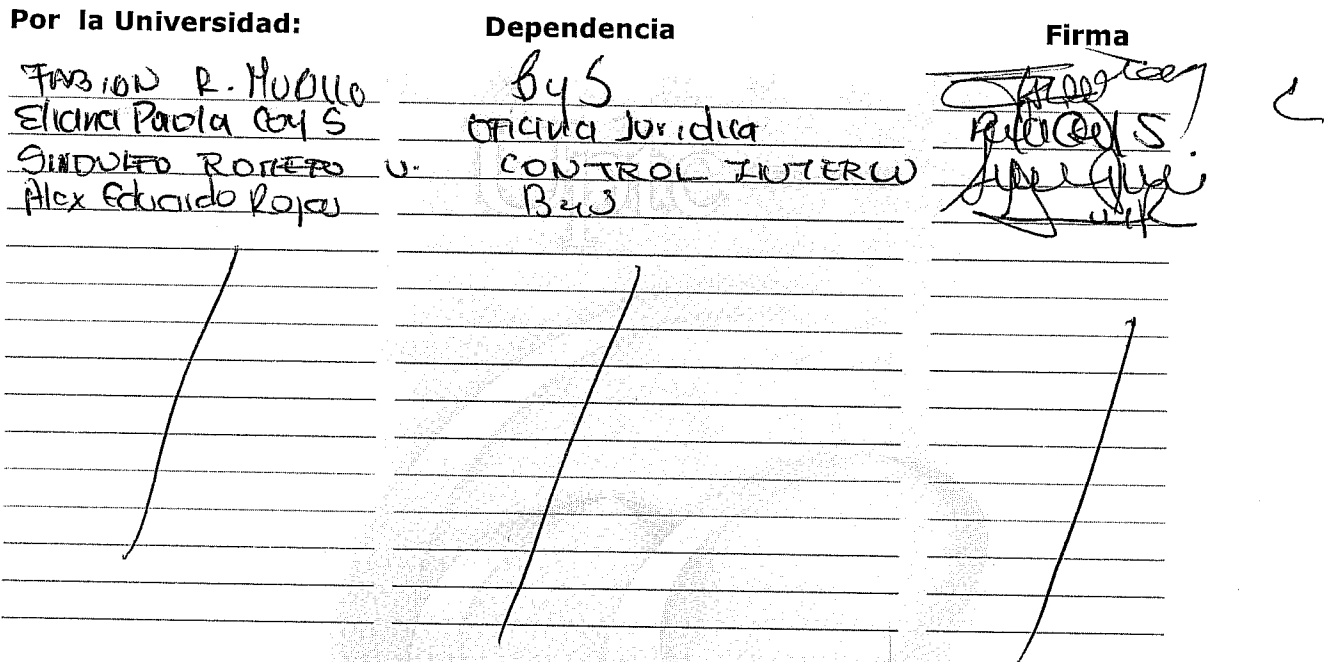 Por la Universidad: Dependencia Firma
FABION R. ByS
Eliana Paola Coy S Oficina Juridica Paola Coy S
SINDULFO ROMERO V. CONTROL INTERNO
Alex Eduardo Rojas ByS